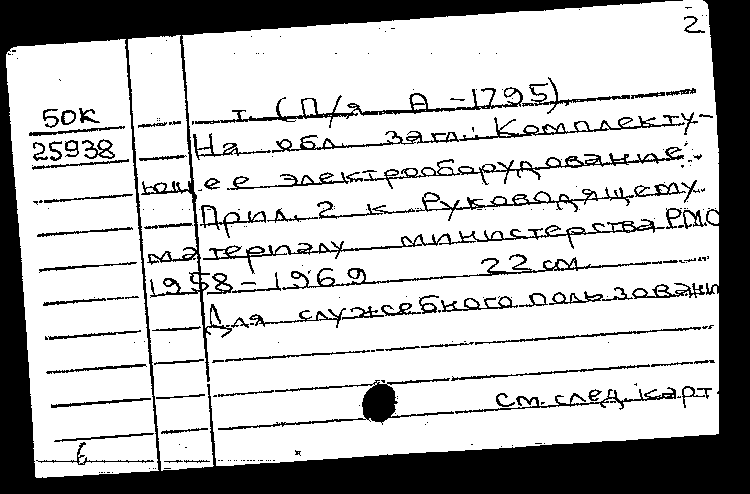 2
50К т. (П/я А-1795)
25938 На обл. загл.: Комплекту-
ющее электрооборудование.
Прил. 2 к Руководящему
материалу министерства РМО
1958-1969 22 см.
Для служебного пользовани
см. след. карт.
6